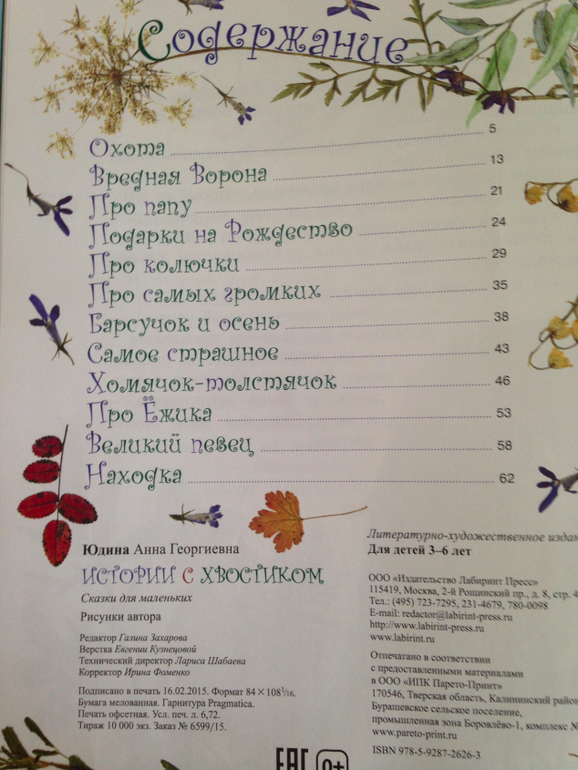 Содержание
Охота 5
Вредная Ворона 13
Про папу 21
Подарки на Рождество 24
Про колючки 29
Про самых громких 35
Барсучок и осень 38
Самое страшное 43
Хомячок-толстячок 46
Про Ёжика 53
Великий певец 58
Находка 62
Юдина Анна Георгиевна
ИСТОРИИ С ХВОСТИКОМ
Сказки для маленьких
Рисунки автора
Редактор Галина Захарова
Верстка Евгении Кузнецовой
Технический директор Лариса Шабаева
Корректор Ирина Фоменко
Подписано в печать 16.02.2015. Формат 84 × 108 1/16.
Бумага мелованная. Гарнитура Pragmatica.
Печать офсетная. Усл. печ. л. 6,72.
Тираж 10 000 экз. Заказ № 6599/15.
Литературно-художественное издан
Для детей 3–6 лет
ООО «Издательство Лабиринт Пресс»
115419, Москва, 2-й Рощинский пр., д. 8, стр. 4
Тел.: (495) 723-7295, 231-4679, 780-0098
E-mail: redactor@labirint-press.ru
http://www.labirint-press.ru
www.labirint.ru
Отпечатано в соответствии
с предоставленными материалами
в ООО «ИПК Парето-Принт»
170546, Тверская область, Калининский район
Бурашевское сельское поселение,
промышленная зона Боровлёво-1, комплекс №
www.pareto-print.ru
ISBN 978-5-9287-2626-3
EAC 0+